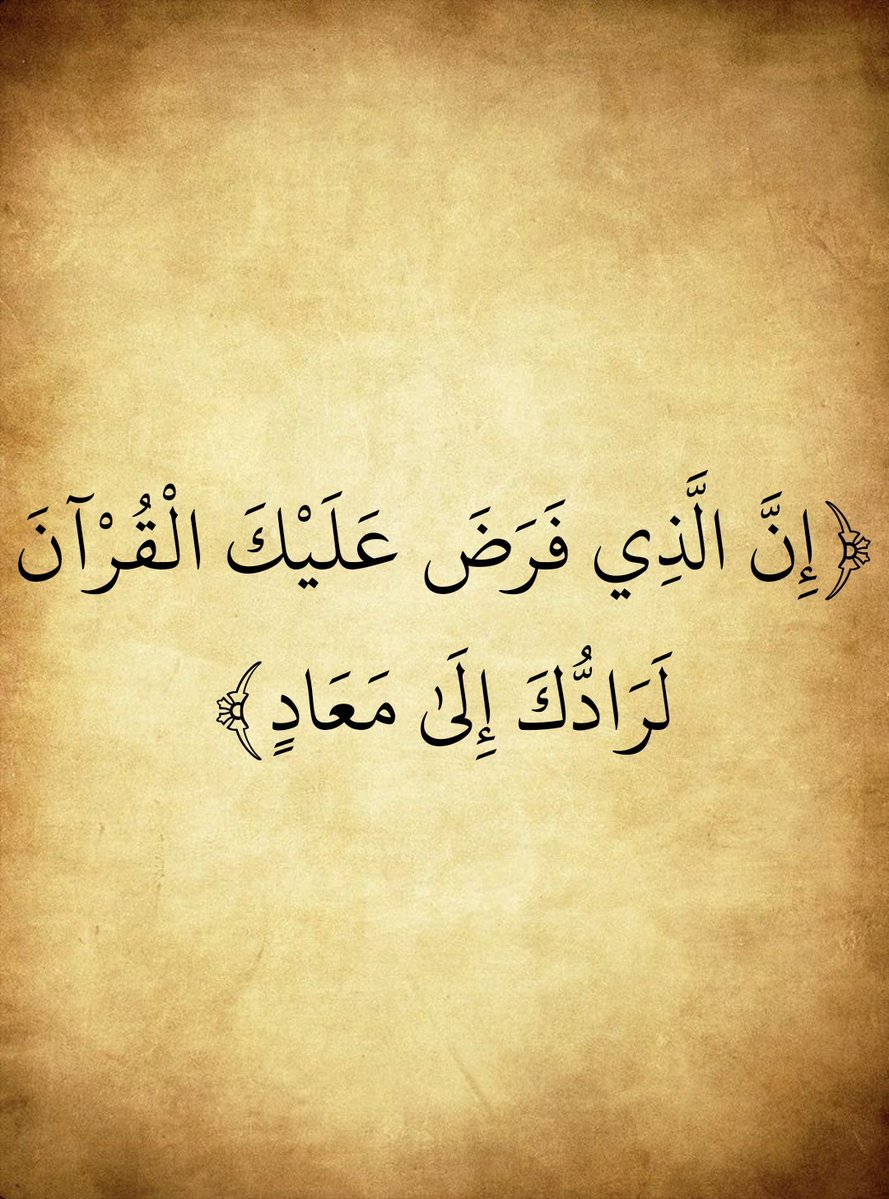 ﴿إِنَّ الَّذِي فَرَضَ عَلَيْكَ الْقُرْآنَ
لَرَادُّكَ إِلَىٰ مَعَادٍ﴾